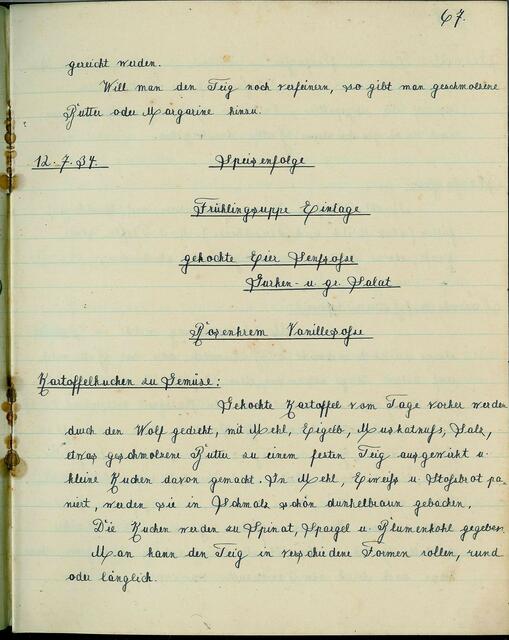 67.
gereicht werden.
Will man den Teig noch verfeinern, so gibt man geschmolzene
Butter oder Margarine hinzu.
12.7.34. Speisenfolge
Frühlingsuppe Einlage
gekochte Eier Senfsoße
Gurken- u. gr. Salat
Rosenkrem Vanillesoße
Kartoffelkuchen zu Gemüse:
Gekochte Kartoffel vom Tage vorher werden
durch den Wolf gedreht, mit Mehl, Eigelb, Muskatnuß, Salz,
etwas geschmolzene Butter zu einem festen Teig ausgewirkt u.
kleine Kuchen davon gemacht. In Mehl, Eiweiß u. Stoßbrot pa-
niert, werden sie in Schmalz schön dunkelbraun gebacken.
Die Kuchen werden zu Spinat, Spargel u. Blumenkohl gegeben.
Man kann den Teig in verschiedene Formen rollen, rund
oder länglich.